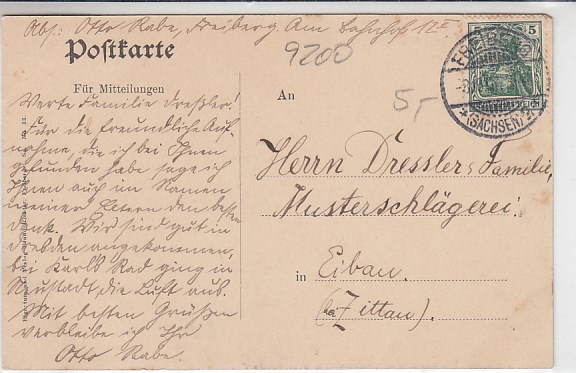 Abs: Otto Rabe, Freiberg. Am Bahnhof 12 II
Postkarte
9200
5
5
FREIBERG
(SACHSEN)
REICH
Für Mitteilungen
An
5,-
Werte Familie Dreßler!
Für die freundliche Auf-
nahme, die ich bei Ihnen
gefunden habe sage ich
Ihnen auch im Namen
meiner Eltern den besten
Dank. Wir sind gut in
Dresden angekommen,
bei Karls Rad ging in
Neustadt die Luft aus.
Mit besten Grüßen
verbleibe ich Ihr
Otto Rabe.
Herrn Dressler's Familie,
Musterschlägerei.
in Eibau.
(bei Zittau).